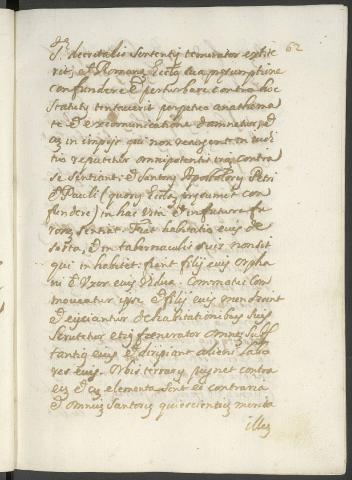 62
Si decretalis sententię temerator extite
rit, et Romanā Ecclā sua presumptione
confundere et perturbare contra hoc
statutū tentaverit perpetuo anathema
te et excomunicatione damnetur, et
cū impijs qui non resurgent in iudi
tio reputetur omnipotentis irā contra
se sentiat: et Santorū Apostolorū Petri
et Pauli (quorū Ecclā presumet con
fundere) in hac vita et in futura fu
rorē sentiat. Fiat habitatio eius de
serta, et in tabernaculis suis non sit
qui inhabitet: fiant filij eius orpha
ni et Uxor eius Vidua. Commotus com
moveatur ipse et filij eius mendicent
et eijciantur de habitationibus suis
scrutetur fęnerator omnē subs
tantiā eius et diripiant alieni labo
res eius. Orbis terrarū pugnet contra
eū et cū elementa sint ei contraria
et omniū Santorū quiescentiū merita
illū